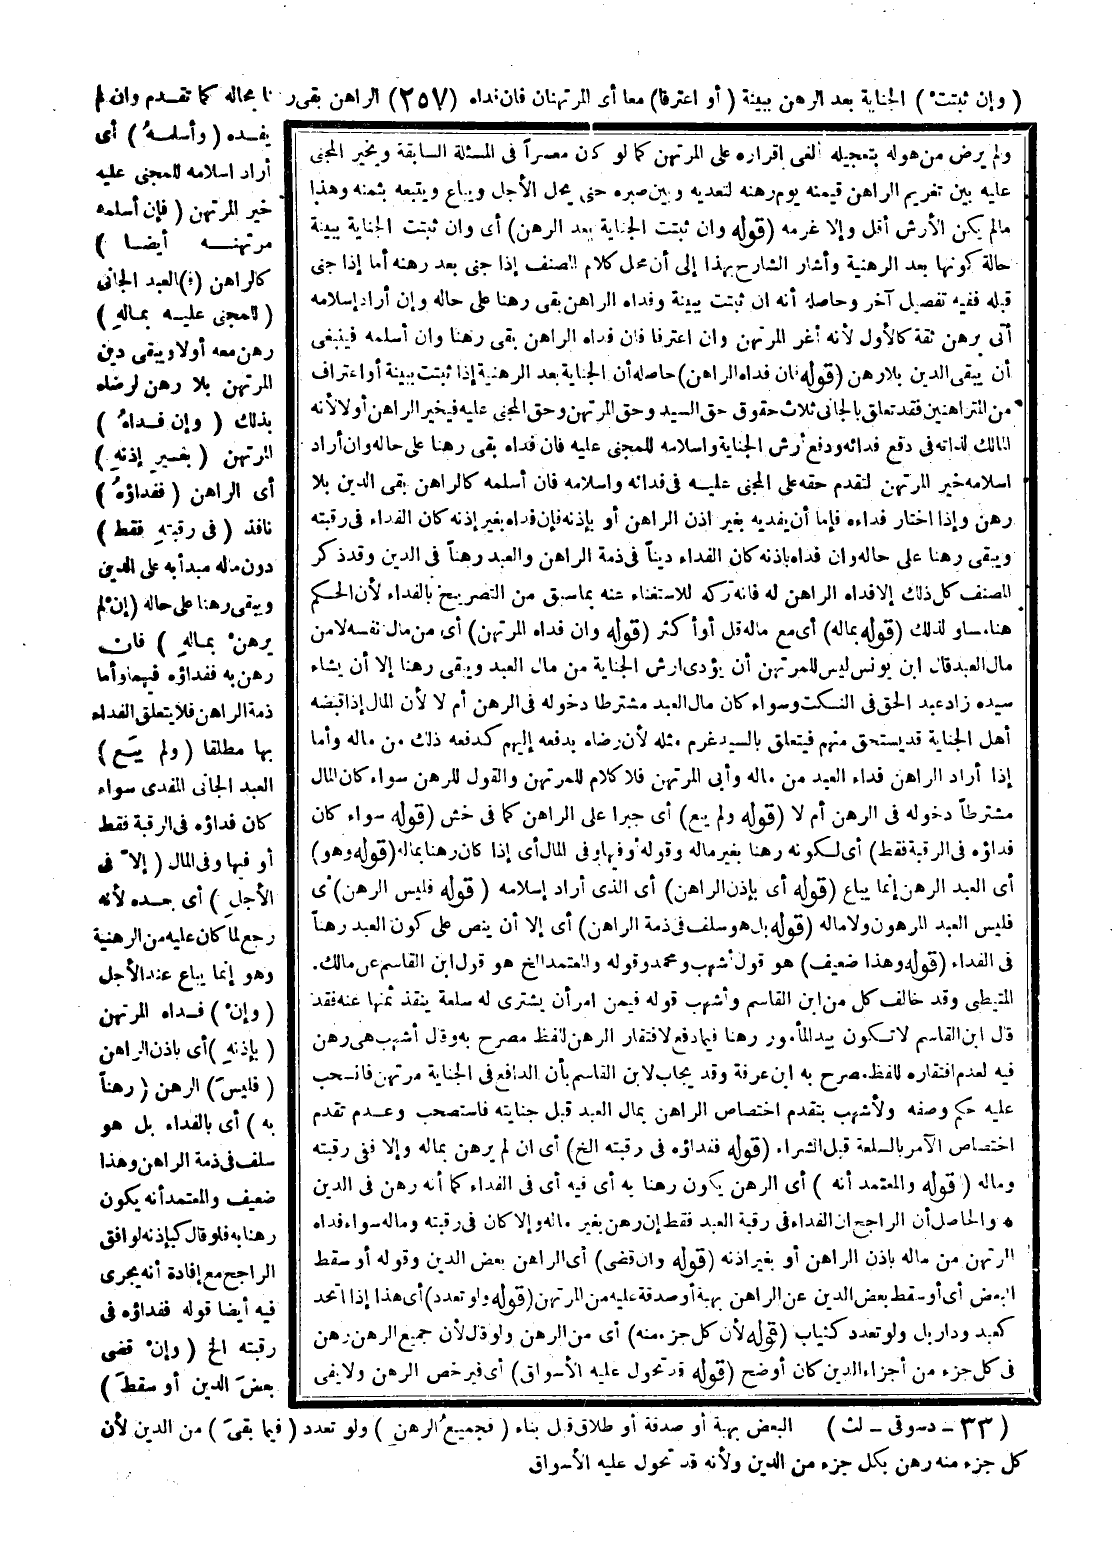 ( وإن ثبتت ) الجناية بعد الرهن ببينة ( أو اعترفا ) معا أى المرتهنان فان فداه (٢٥٧) الراهن بقى رهنا بحاله كما تقدم وان لم
يفده ( وأسلمه ) أى
أراد اسلامه للمجنى عليه
خير المرتهن ( فإن أسلمه
مرتهنه أيضا )
كالراهن (ف) العبد الجانى
( للمجنى عليه بماله )
رهن معه أولا ويبقى دين
المرتهن بلا رهن لرضاه
بذلك ( وإن فداه )
المرتهن ( بغير إذنه )
أى الراهن ( ففداؤه )
نافذ ( فى رقبته فقط )
دون ماله مبدأ به على الدين
ويبقى رهنا على حاله ( إن لم
يرهن بماله ) فان
رهن به ففداؤه فيهما وأما
ذمة الراهن فلا يتعلق الفداء
بها مطلقا ( ولم يبع )
العبد الجانى المفدى سواء
كان فداؤه فى الرقبة فقط
أو فيها وفى المال ( إلا فى
الأجل ) أى بعده لأنه
رجع لما كان عليه من الرهنية
وهو إنما يباع عند الأجل
( وإن ) فداه المرتهن
( بإذنه ) أى باذن الراهن
( فليس ) الرهن ( رهناً
به ) أى بالفداء بل هو
سلف فى ذمة الراهن وهذا
ضعيف والمعتمد أنه يكون
رهنا به فلو قال كبإذنه لوافق
الراجح مع إفادة أنه يجرى
فيه أيضا قوله ففداؤه فى
رقبته الخ ( وإن قضى
بعض الدين أو سقط )
ولم يرض من هو له بتعجيله ألغى إقراره على المرتهن كما لو كان معسراً فى المسئلة السابقة ويخير المجنى
عليه بين تغريم الراهن قيمته يوم رهنه لتعديه وبين صبره حتى يحل الأجل ويباع ويتبعه بثمنه وهذا
مالم يكن الأرش أقل وإلا غرمه (قوله وان ثبتت الجناية بعد الرهن) أى وان ثبتت الجناية ببينة
حالة كونها بعد الرهنية وأشار الشارح بهذا إلى أن محل كلام المصنف إذا جنى بعد رهنه أما إذا جنى
قبله ففيه تفصيل آخر وحاصله أنه ان ثبتت ببينة وفداه الراهن بقى رهنا على حاله وإن أراد إسلامه
أتى برهن ثقة كالأول لأنه أغر المرتهن وان اعترفا فان فداه الراهن بقى رهنا وان أسلمه فينبغى
أن يبقى الدين بلارهن (قوله فان فداه الراهن) حاصله أن الجناية بعد الرهنية إذا ثبتت ببينة أو اعتراف
من المتراهنين فقد تعلق بالجانى ثلاث حقوق حق السيد وحق المرتهن وحق المجنى عليه فيخير الراهن أولا لأنه
المالك لذاته فى دفع فدائه ودفع أرش الجناية واسلامه للمجنى عليه فان فداه بقى رهنا على حاله وان أراد
اسلامه خير المرتهن لتقدم حقه على المجنى عليه فى فدائه واسلامه فان أسلمه كالراهن بقى الدين بلا
رهن وإذا اختار فداءه فإما أن يفديه بغير اذن الراهن أو بإذنه فإن فداه بغير إذنه كان الفداء فى رقبته
ويبقى رهنا على حاله وان فداه باذنه كان الفداء ديناً فى ذمة الراهن والعبد رهناً فى الدين وقد ذكر
المصنف كل ذلك إلا فداه الراهن له فانه تركه للاستغناء عنه بما سبق من التصريح بالفداء لأن الحكم
هنا مساو لذلك (قوله بماله) أى مع ماله قل أو أكثر (قوله وان فداه المرتهن) أى من مال نفسه لا من
مال العبد قال ابن يونس ليس للمرتهن أن يؤدى ارش الجناية من مال العبد ويبقى رهنا إلا أن يشاء
سيده زاد عبد الحق فى النكت وسواء كان مال العبد مشترطا دخوله فى الرهن أم لا لأن المال إذا قبضه
أهل الجناية قد يستحق منهم فيتعلق بالسيد غرم مثله لأن رضاه بدفعه إليهم كدفعه ذلك من ماله وأما
إذا أراد الراهن فداء العبد من ماله وأبى المرتهن فلا كلام للمرتهن والقول للرهن سواء كان المال
مشترطاً دخوله فى الرهن أم لا (قوله ولم يبع) أى جبرا على الراهن كما فى خش (قوله سواء كان
فداؤه فى الرقبة فقط) أى لكونه رهنا بغير ماله وقوله أو فيها وفى المال أى إذا كان رهنا بماله (قوله وهو)
أى العبد الرهن إنما يباع (قوله أى بإذن الراهن) أى الذى أراد إسلامه ( قوله فليس الرهن) أى
فليس العبد المرهون ولا ماله (قوله بل هو سلف فى ذمة الراهن) أى إلا أن ينص على كون العبد رهناً
فى الفداء (قوله وهذا ضعيف) هو قول أشهب ومحمد وقوله والمعتمد الخ هو قول ابن القاسم عن مالك.
المتيطى وقد خالف كل من ابن القاسم وأشهب قوله فيمن امر أن يشترى له سلعة ينقذ ثمنها عنه فقد
قال ابن القاسم لا تكون بيد المأمور رهنا فيما دفع لافتقار الرهن للفظ مصرح به وقال أشهب هى رهن
فيه لعدم افتقاره للفظ مصرح به ابن عرفة وقد يجاب لابن القاسم بأن الدافع فى الجناية مرتهن فانسحب
عليه حكم وصفه ولأشهب بتقدم اختصاص الراهن بمال العبد قبل جنايته فاستصحب وعدم تقدم
اختصاص الآمر بالسلعة قبل الشراء (قوله ففداؤه فى رقبته الخ) أى ان لم يرهن بماله وإلا ففى رقبته
وماله ( قوله والمعتمد أنه ) أى الرهن يكون رهنا به أى فيه أى فى الفداء كما أنه رهن فى الدين
* والحاصل أن الراجح ان الفداء فى رقبة العبد فقط إن رهن بغير ماله وإلا كان فى رقبته وماله سواء فداه
المرتهن من ماله باذن الراهن أو بغير اذنه (قوله وان قضى) أى الراهن بعض الدين وقوله أو سقط
البعض أى أو سقط بعض الدين عن الراهن بهبة أو صدقة عليه من المرتهن (قوله ولو تعدد) أى هذا إذا اتحد
كعبد ودار بل ولو تعدد كثياب (قوله لأن كل جزء منه) أى من الرهن ولو قال لأن جميع الرهن رهن
فى كل جزء من أجزاء الدين كان أوضح (قوله قد تحول عليه الأسواق) أى فيرخص الرهن ولا يفى
( ٣٣ - دسوقى - لث ) البعض بهبة أو صدقة أو طلاق قبل بناء ( فجميع الرهن ) ولو تعدد ( فيما بقى ) من الدين لأن
كل جزء منه رهن بكل جزء من الدين ولأنه قد تحول عليه الأسواق